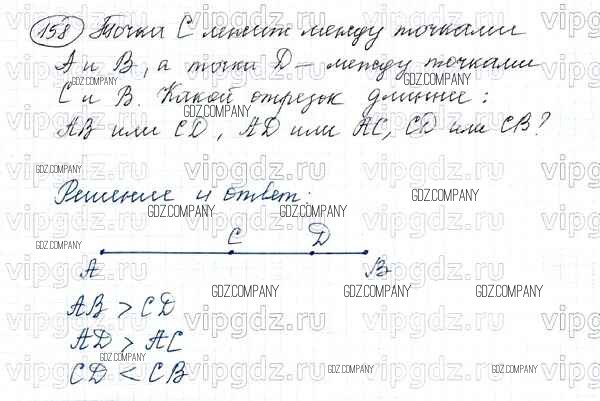 158 Точка C лежит между точками
A и B, а точка D — между точками
C и B. Какой отрезок длиннее:
AB или CD, AD или AC, CD или CB?
Решение и ответ:
C D
A B
AB > CD
AD > AC
CD < CB
GDZ.COMPANY
vipgdz.ru